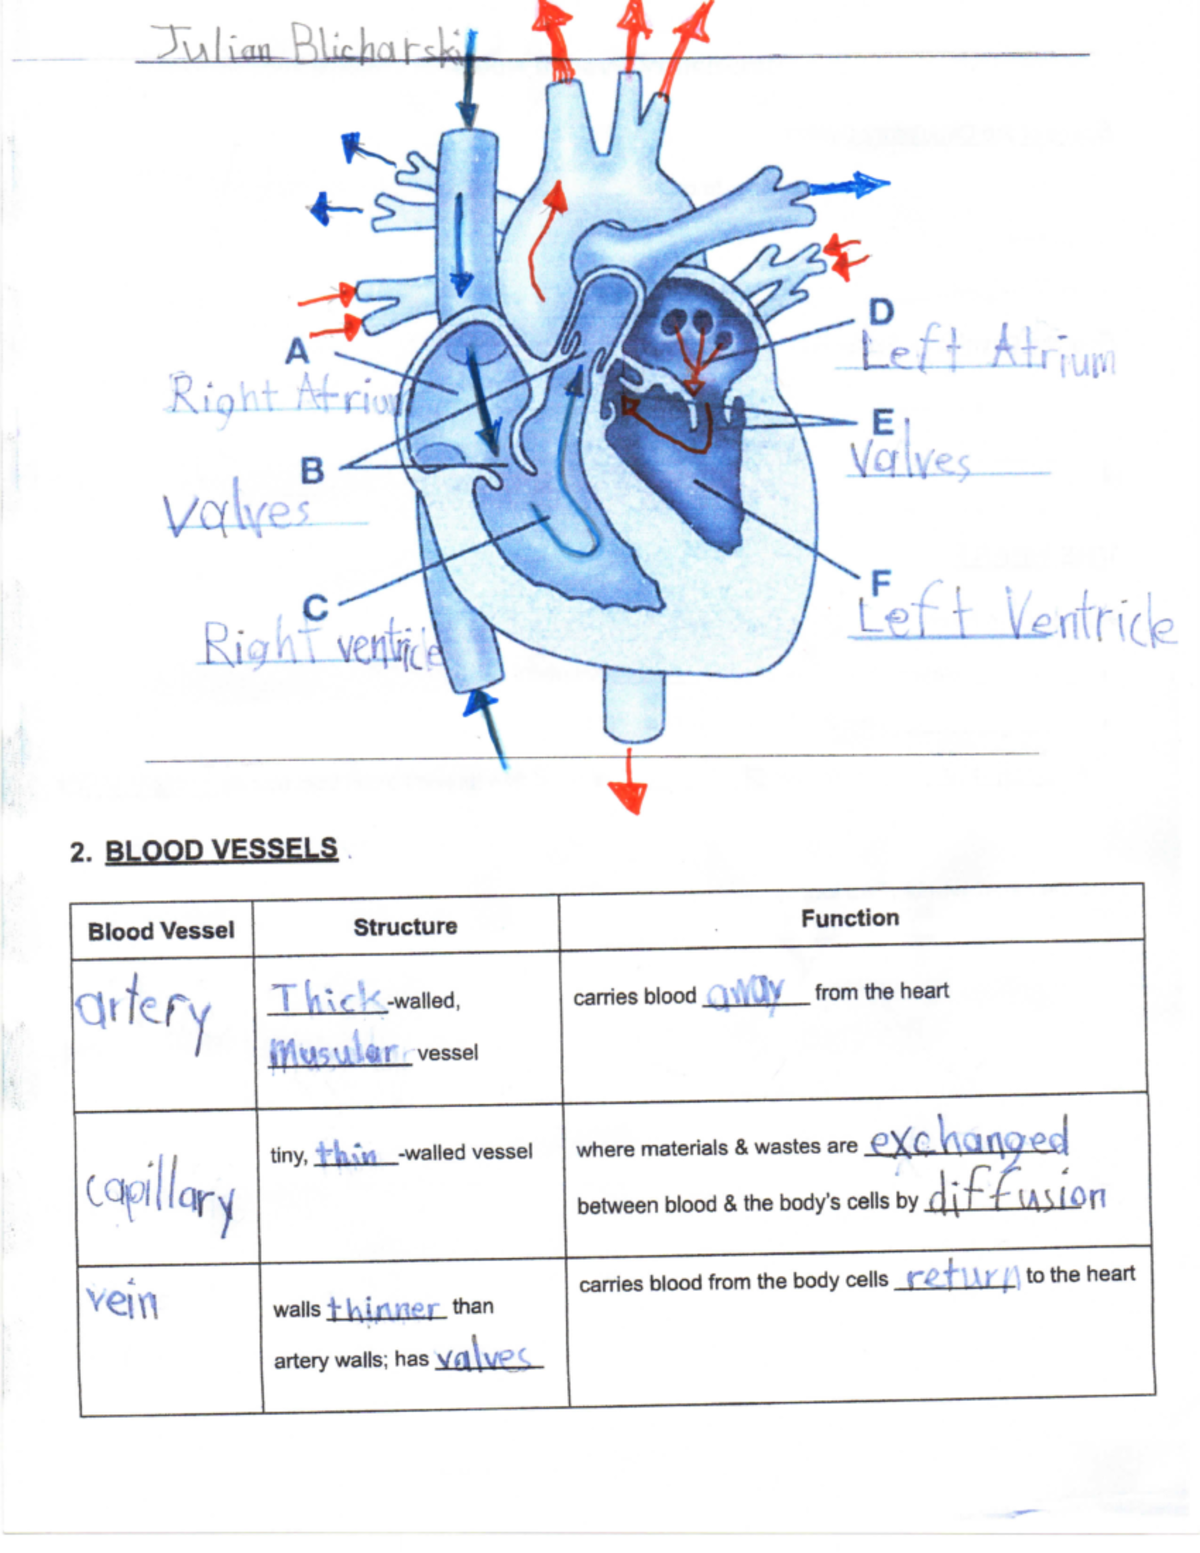 Julian Blicharski
A
Right Atrium
B
Valves
C
Right ventricle
D
Left Atrium
E
Valves
F
Left Ventricle
2. BLOOD VESSELS
Blood Vessel Structure Function
artery Thick-walled, carries blood away from the heart
Musular vessel
capillary tiny, thin-walled vessel where materials & wastes are exchanged
between blood & the body's cells by diffusion
vein walls thinner than carries blood from the body cells return to the heart
artery walls; has valves